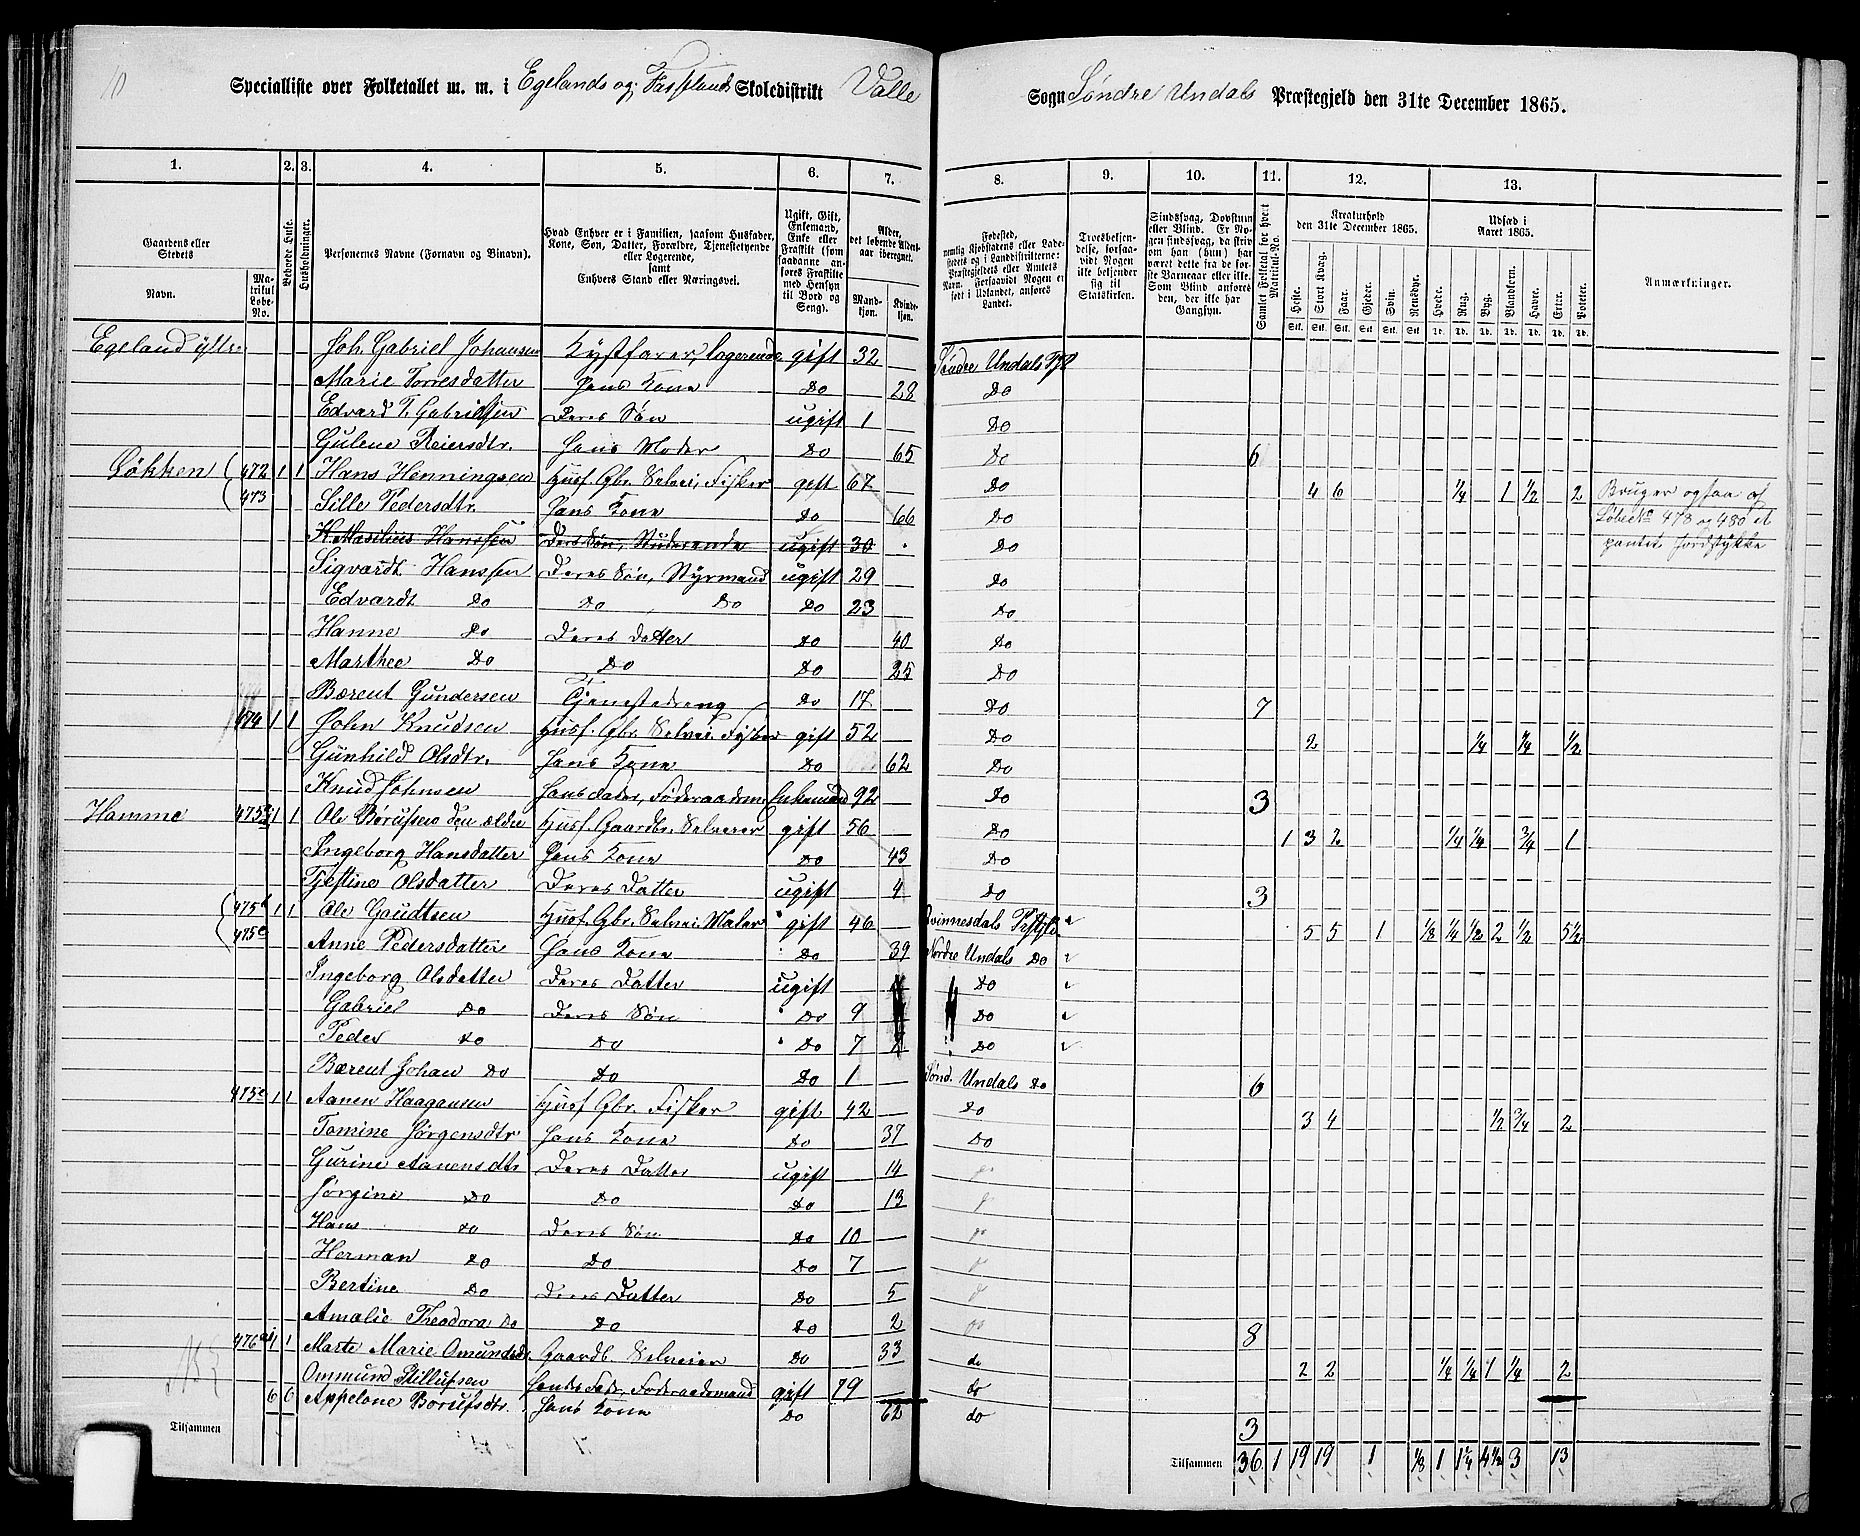 10
Specialliste over Folketallet m. m. i Egelands og Fasseland Skoledistrikt Valle Sogn Søndre Undals Præstegjeld den 31te December 1865.
1. 2. 3. 4. 5. 6. 7. 8. 9. 10. 11. 12. 13.
Gaardens eller Stedets Navn. Matrikul Løbe-No. Beboede Huse. Husholdninger. Personernes Navne (Fornavn og Binavn). Hvad Enhver er i Familien, saasom Husfader, Kone, Søn, Datter, Forældre, Tjenestetyende eller Logerende, samt Enhvers Stand eller Næringsvei. Ugift, Gift, Enkemand, Enke eller Fraskilt (som saadanne anføres Fraskilte med Hensyn til Bord og Seng). Alder, det løbende Alders-aar iberegnet. Mandkjøn. Kvindekjøn.
Fødested, nemlig Kjøbstadens eller Ladestedets og i Landdistrikterne: Præstegjeldets eller Amtets Navn. Forsaavidt Nogen er født i Udlandet, anføres Landet. Troesbekjendelse, forsaavidt Nogen ikke bekjender sig til Statskirken. Sindssvag, Døvstum eller Blind. Er Nogen sindssvag, da skrives om han (hun) har været dette fra de første Barneaar eller ikke. Som Blind anføres den, der ikke har Gangsyn. Samlet Folketal for hvert Matrikul-No. Kreaturhold den 31te December 1865. Udsæd i Aaret 1865. Anmærkninger.
Heste. Stort Kvæg. Faar. Gjeder. Svin. Rensdyr. Hvede. Rug. Byg. Blandkorn. Havre. Erter. Poteter.
Egeland ytre Joh. Gabriel Johansen Kystfarer, logerende gift 32 Søndre Undals Pgl
Marie Torresdatter Hans Kone Do 28 Do
Edvard T. Gabrielsen Deres Søn ugift 1 Do
Gulene Reiersdtr. Hans Moder Do 65 Do 6
Løkken 472 1 1 Hans Henningsen Husf. Gbr. Selvei, Fisker gift 67 Do 4 6 1/4 1 1/2 2 Bruger ogsaa af
473 Sille Pedersdtr. Hans Kone Do 66 Do Løbeno 478 og 480 et
Hanssen Deres Søn, Studerende ugift 30 Do pantet Jordstykke
Sigvardt Hanssen Deres Søn, Styrmand ugift 29 Do
Edvardt Do Do Do Do 23 Do
Hanne Do Deres Datter Do 40 Do
Marthe Do Do Do 25 Do
Bærent Gundersen Tjenestedreng Do 17 Do 7
474 1 1 John Knudsen Husf. Gbr. Selvei. Fisker gift 52 Do 2 1/4 1/4 1/2
Gunhild Olsdtr. Hans Kone Do 62 Do
Knud Johnsen Hans Fader, Føderaadsm. Enkemand 92 Do 3
Hamme 475a 1 1 Ole Børufsen den ældre Husf. Gaardbr. Selveier gift 56 Do 1 3 2 1/4 1/4 3/4 1
Ingeborg Hansdatter Hans Kone Do 43 Do
Tjestine Olsdatter Deres Datter ugift 4 Do 3
475b 1 1 Ole Gautsen Husf. Gbr. Selvei. Maler gift 46 Qvinnesdals Præstgl. 5 5 1 1/8 1/4 1/2 2 1/2 5 1/2
475c Anne Pedersdatter Hans Kone Do 39 Nordre Undals Do
Ingeborg Olsdatter Deres Datter ugift Do
Gabriel Do Deres Søn Do 9 Do
Peder Do Do Do 7 Do
Bærent Johan Do Do Do 1 Sønd. Undals Do 6
475c 1 1 Aanen Haagansen Husf. Gbr. Fisker gift 42 Do 3 4 1/2 3/4 2
Tomine Jørgensdtr Hans Kone Do 37 Do
Gurine Aanensdtr Deres Datter ugift 14
Jørgine Do Do Do 13
Hans Do Deres Søn Do 10
Herman Do Do Do 7
Bertine Do Deres Datter Do 5
Amalie Theodora Do Do Do 2 8
476a 1 1 Marte Marie Omundsdtr. Gaardb. Selveier Do 33 do 2 2 1/4 1/4 1 1/4 2
Ommund Stillufsen Hendes Fader, Føderaadsmand gift 79 do
6 6 Appelone Børufsdtr. Hans Kone Do 62 do 3
Tilsammen Tilsammen 36 1 19 19 1 1/8 1 1 1/4 4 1/2 3 13